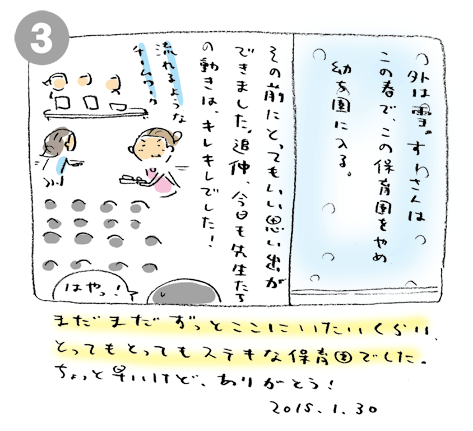 3
外は雪。すわさんは
この春で、この保育園をやめ
幼ち園に入る。
その前にとってもいい思い出が
できました。追伸、今日も先生たち
の動きは、キレキレでした!
流れるような
チームワーク
はやっ!
まだまだずっとここにいたいくらい、
とってもとってもステキな保育園でした。
ちょっと早いけど、ありがとう!
2015.1.30